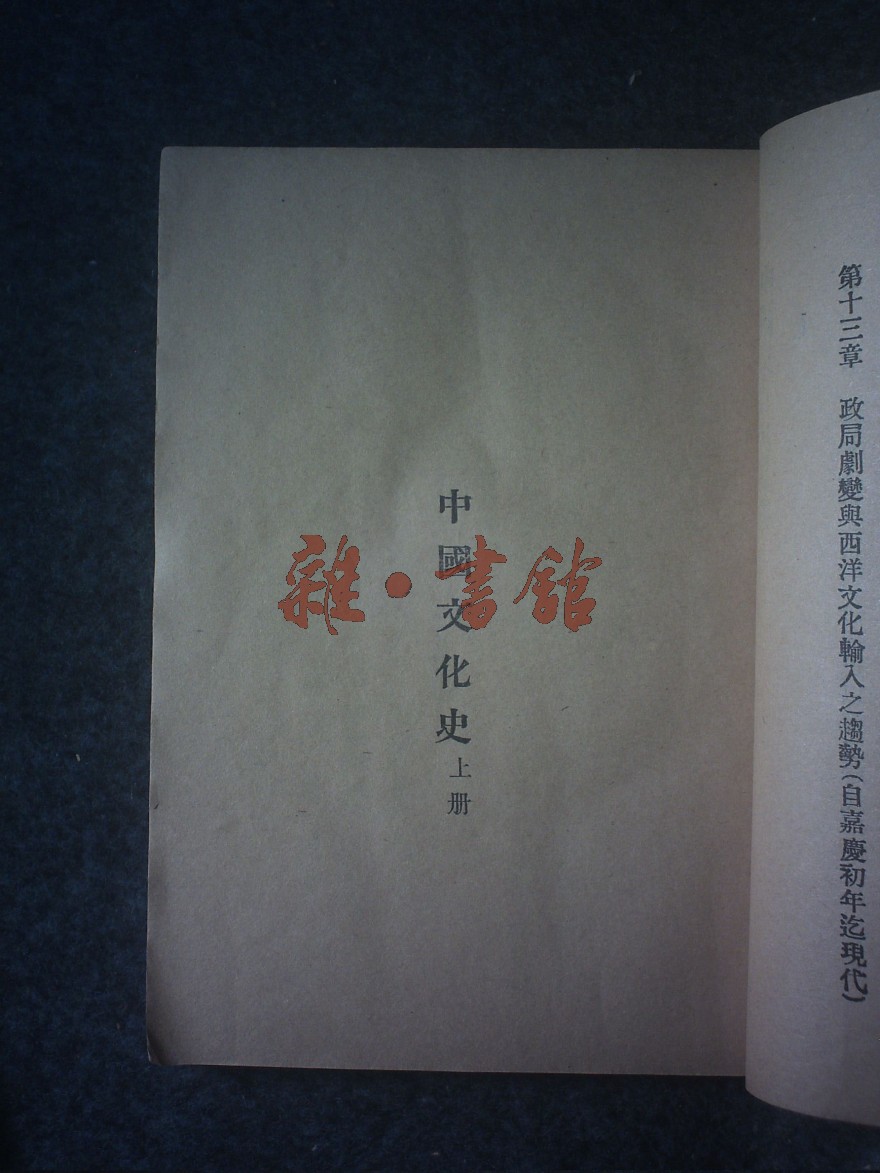 第十三章　政局劇變與西洋文化輸入之趨勢（自嘉慶初年迄現代）
中國文化史上册
雜·書館